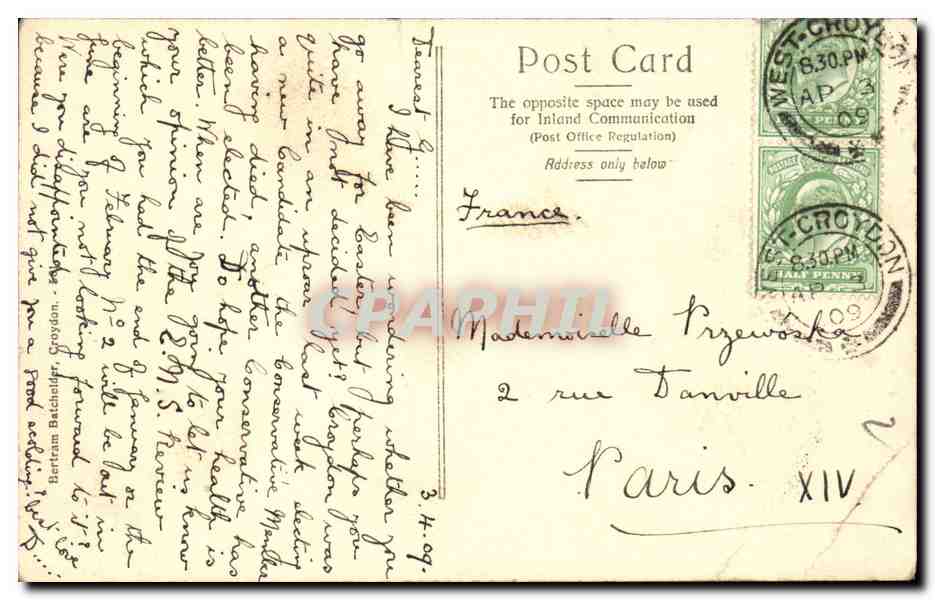 3.4.09.
Dearest G.....
I have been wondering whether you
go away for Easter, but perhaps you
have not decided yet? Croydon was
quite in an uproar last week electing
a new Candidate the Conservative Member
having died, another Conservative has
been elected. Do hope your health is
better. When are you going to let us know
your opinion of the E.M.S. Review
which you had the end of January or the
beginning of February No 2 will be out in
June are you not looking forward to it?
Were you disappointed
because I did not give you a good scolding?
Bertram Batchelder, Croydon.
Post Card
The opposite space may be used
for Inland Communication
(Post Office Regulation)
Address only below
France.
Mademoiselle Przewoska
2 rue Danville
Paris.
XIV
2
WEST-CROYDON
8.30.PM
AP 3
09
PENNY
POSTAGE
WEST-CROYDON
8.30.PM
AP 3
09
HALF PENNY
CPAPHIL